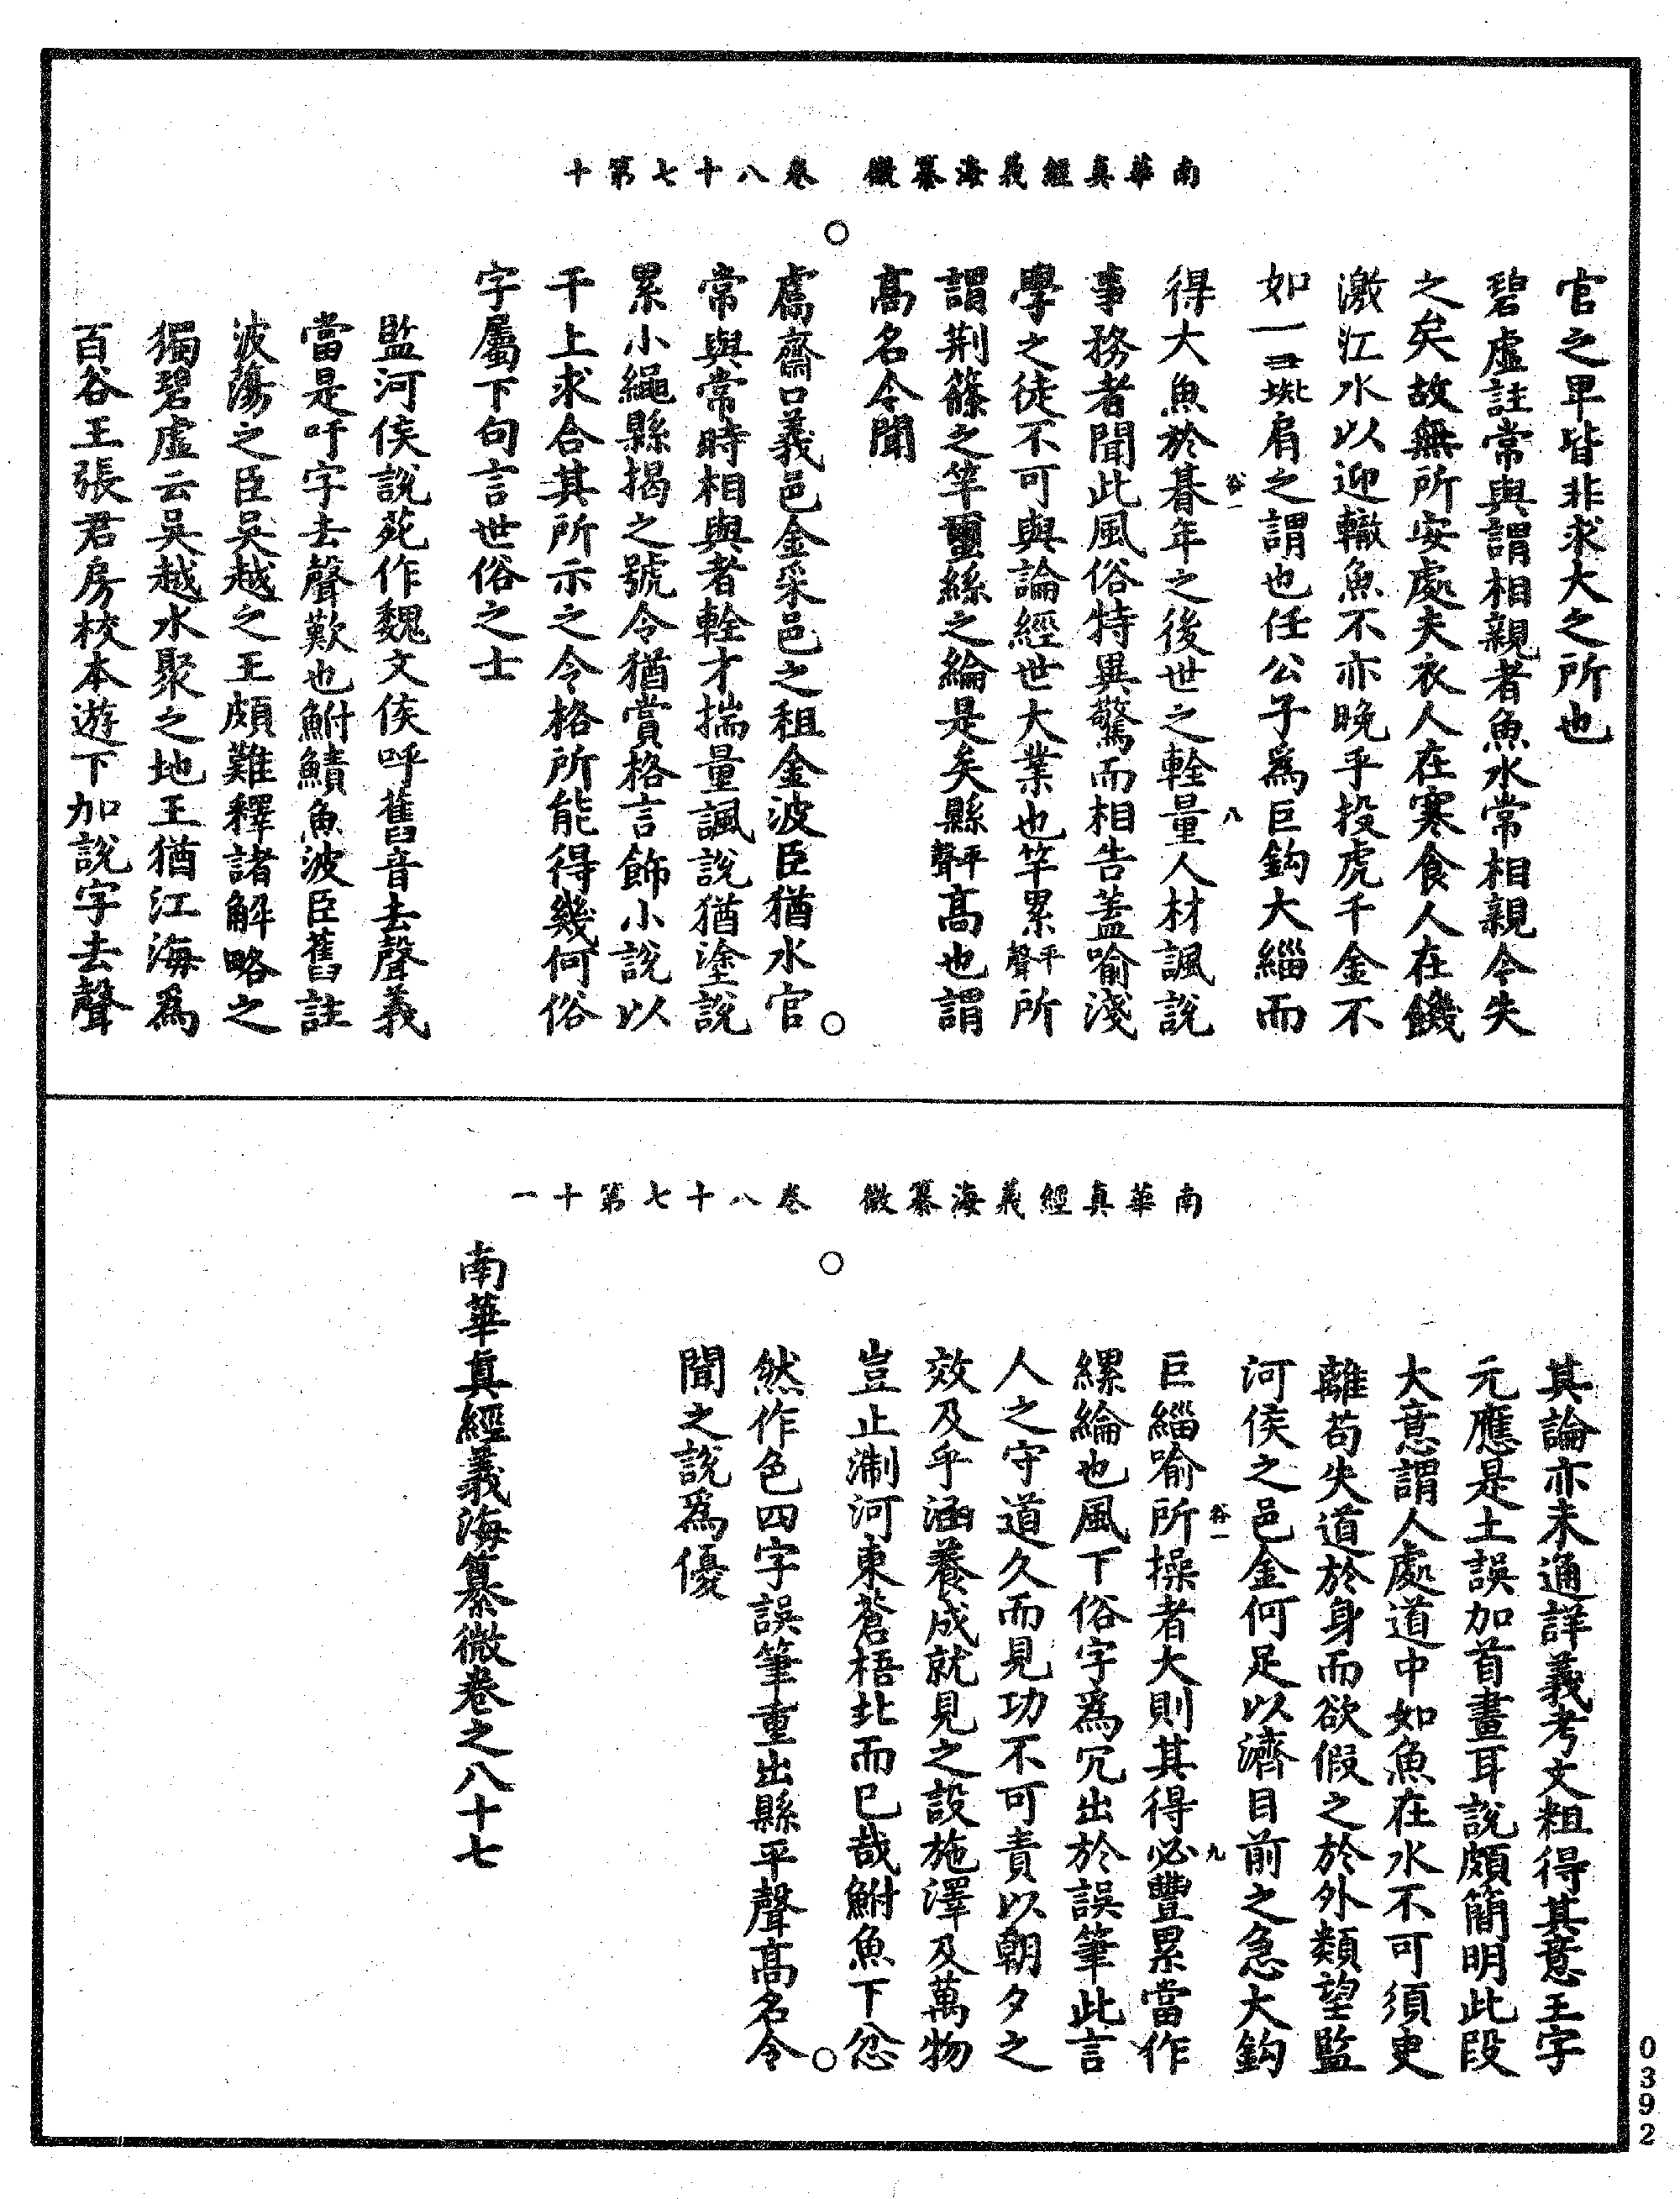 南華真經義海纂微　卷八十七第十
官之卑皆非求大之所也
碧虛註常與謂相親者魚水常相親今失
之矣故無所安處夫衣人在寒食人在饑
激江水以迎轍魚不亦晚乎投虎千金不
如一豚肩之謂也任公子為巨鈎大緇而
得大魚於朞年之後世之輇量人材諷說
事務者聞此風俗特異驚而相告蓋喻淺
學之徒不可與論經世大業也竿累平聲所
謂荆篠之竿璽絲之綸是矣縣平聲高也謂
高名令聞
鬳齋口義邑金采邑之租金波臣猶水官
常與常時相與者輇才揣量諷說猶塗說
累小繩縣揭之號令猶賞格言飾小說以
干上求合其所示之令格所能得幾何俗
字屬下句言世俗之士
監河侯說苑作魏文侯呼舊音去聲義
當是吁字去聲歎也鮒鰿魚波臣舊註
波蕩之臣吳越之王頗難釋諸解略之
獨碧虛云吳越水聚之地王猶江海為
百谷王張君房校本遊下加說字去聲
南華真經義海纂微　卷八十七第十一
其論亦未通詳義考文粗得其意王字
元應是土誤加首畫耳說頗簡明此段
大意謂人處道中如魚在水不可須臾
離苟失道於身而欲假之於外類望監
河侯之邑金何足以濟目前之急大鈎
巨緇喻所操者大則其得必豐累當作
縲綸也風下俗字為冗出於誤筆此言
人之守道久而見功不可責以朝夕之
效及乎涵養成就見之設施澤及萬物
豈止淛河東蒼梧北而已哉鮒魚下忿
然作色四字誤筆重出縣平聲高名令
聞之說為優
南華真經義海纂微卷之八十七
0392